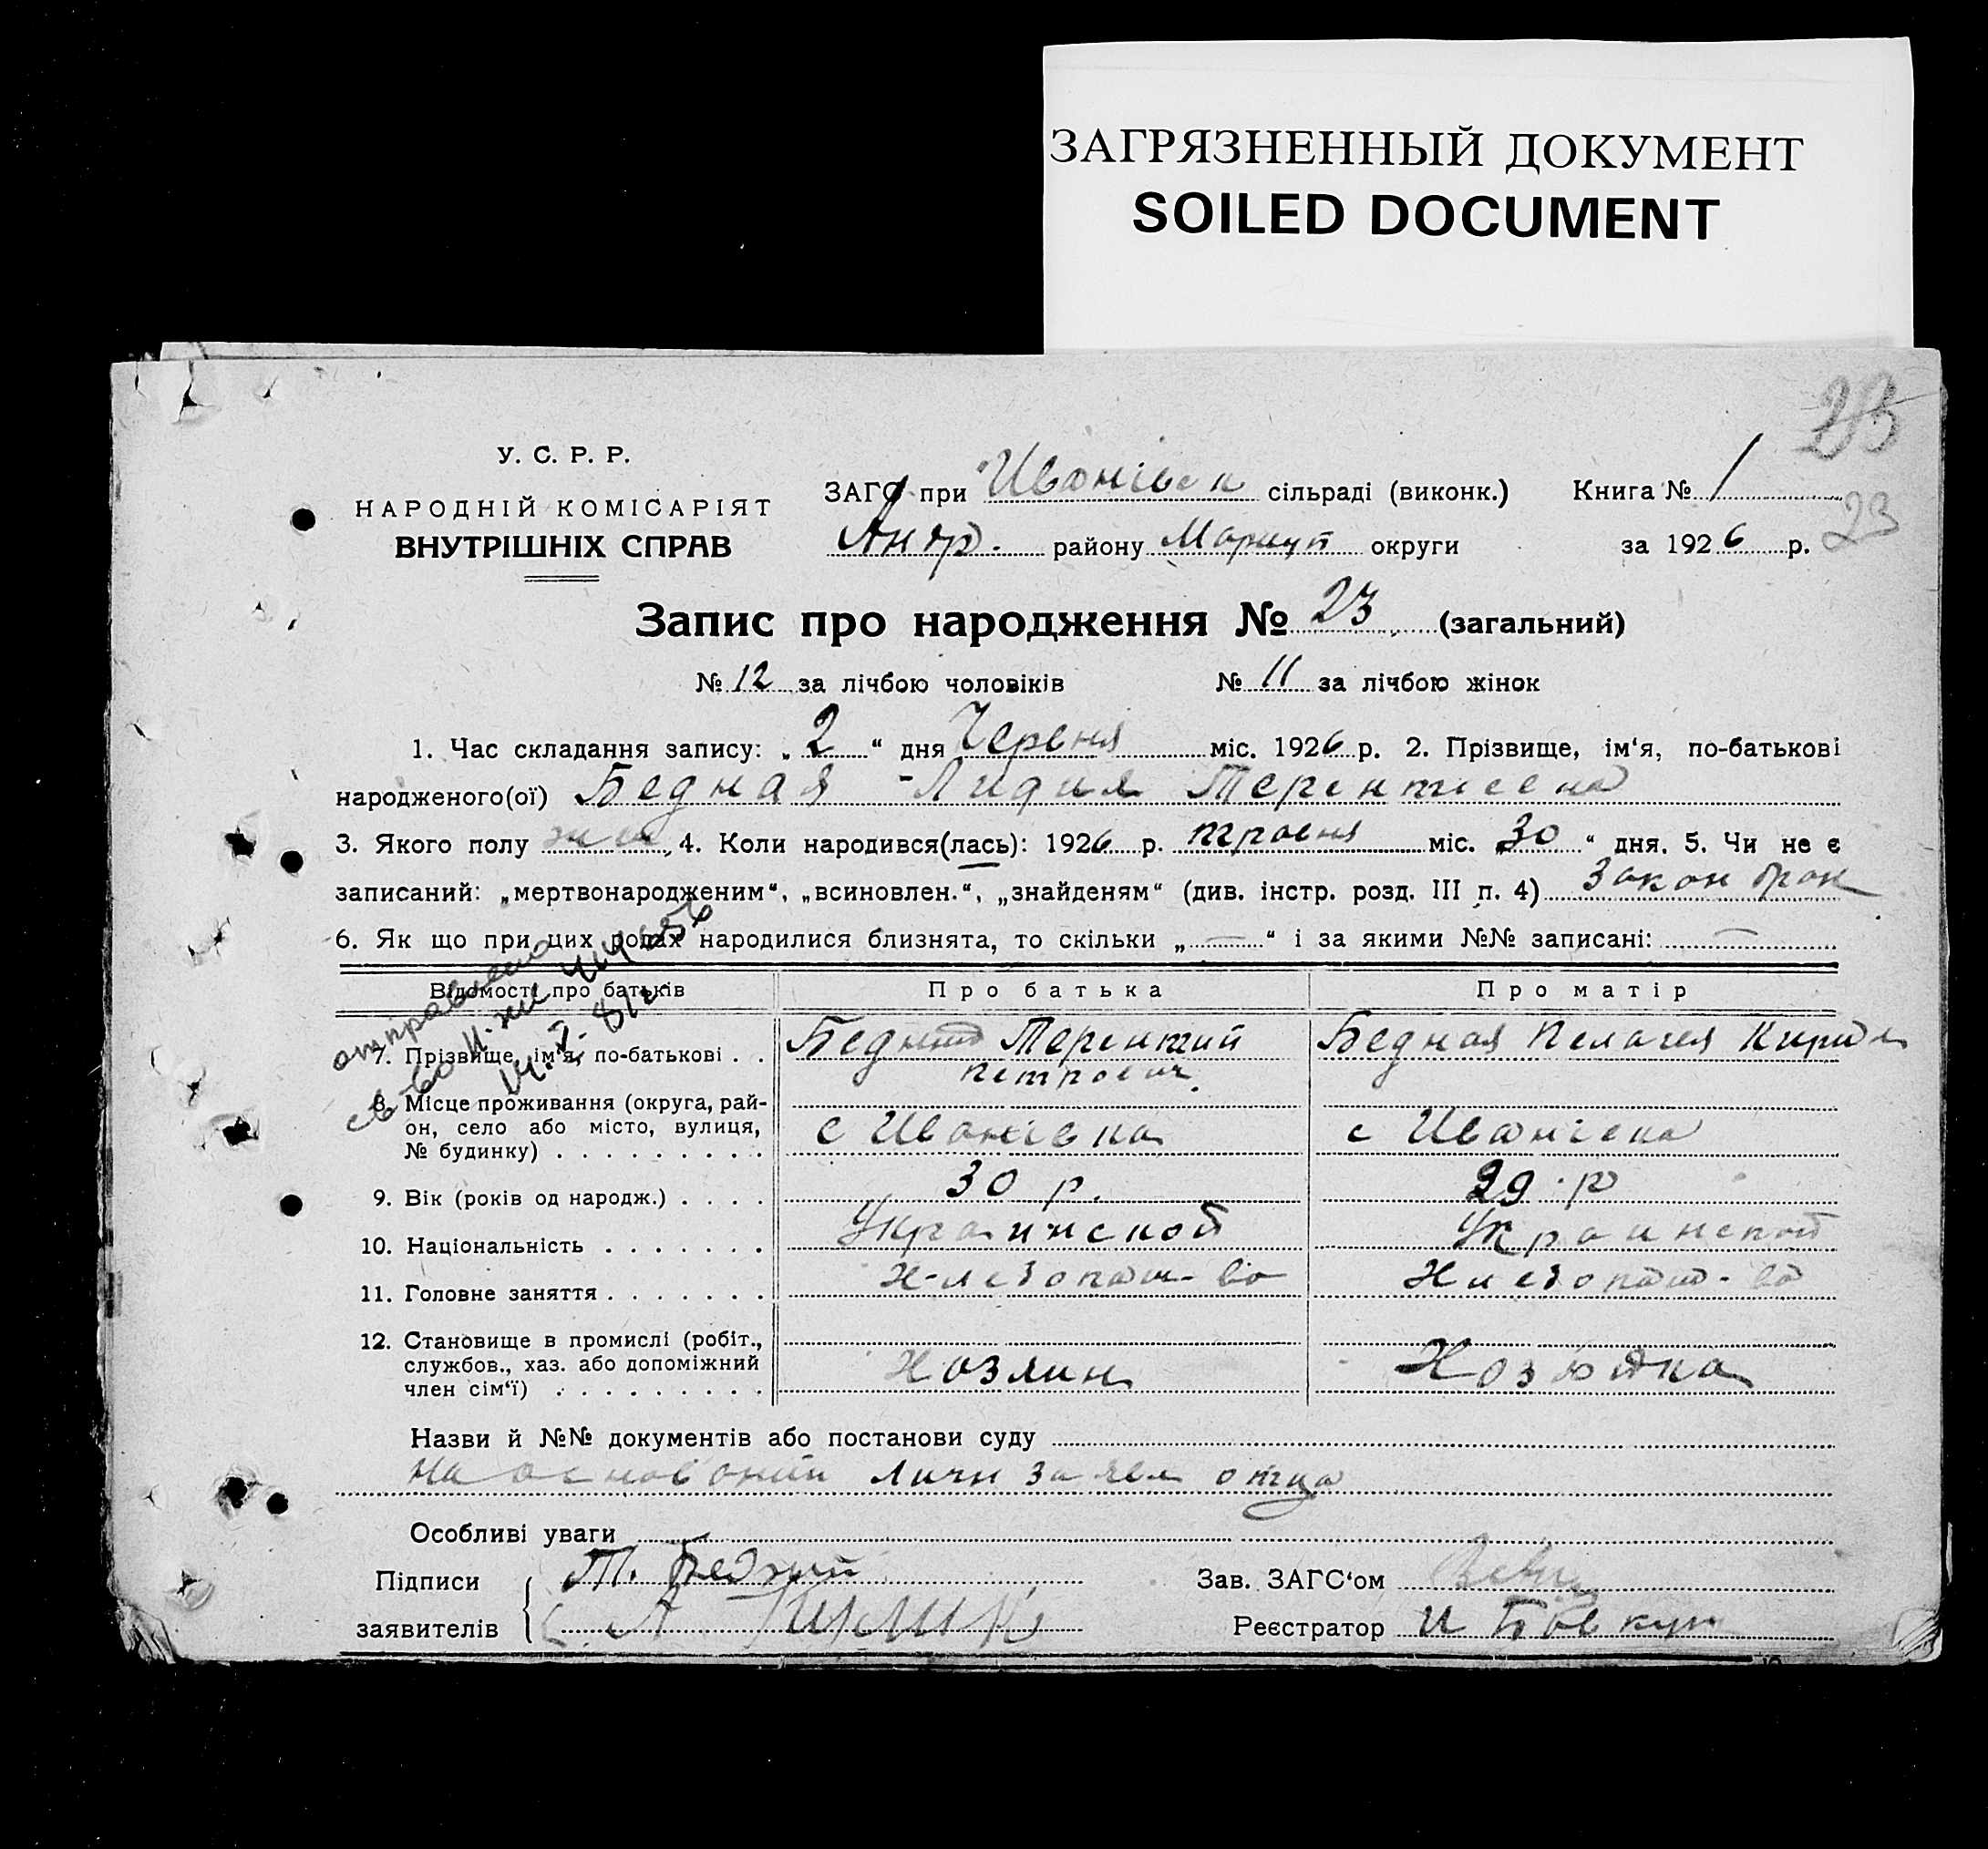 ЗАГРЯЗНЕННЫЙ ДОКУМЕНТ
SOILED DOCUMENT
23
У. С. Р. Р.
НАРОДНІЙ КОМІСАРІЯТ
ВНУТРІШНІХ СПРАВ
ЗАГС при Иванівск сільраді (виконк.) Книга № 1
23
Андр. району Мариуп округи за 1926 р.
Запис про народження № 23 (загальний)
№ 12 за лічбою чоловіків № 11 за лічбою жінок
1. Час складання запису: „2“ дня Червня міс. 1926 р. 2. Прізвище, ім‘я, по-батькові
народженого(ої) Бедная Лидия Терентиевна
3. Якого полу жін 4. Коли народився(лась): 1926 р. травня міс. „30“ дня. 5. Чи не є
записаний: „мертвонародженим“, „всиновлен.“, „знайденям“ (див. інстр. розд. III п. 4) Закон брак
6. Як що при цих родах народилися близнята, то скільки „—“ і за якими №№ записані: —
отправлено
св-во
Відомості про батьків Про батька Про матір
7. Прізвище, ім‘я, по-батькові . . Бедный Терентий Петрович Бедная Пелагея Кирил
8. Місце проживання (округа, рай-
он, село або місто, вулиця,
№ будинку) . . . . . . . . . с Иванівка с Иванівка
9. Вік (років од народж.) . . . . 30 р. 29 р
10. Національність . . . . . . . Украинской Украинской
11. Головне заняття . . . . . . . Хлебопаш-во Хлебопаш-во
12. Становище в промислі (робіт.,
службов., хаз. або допоміжний
член сім‘ї) . . . . . . . . . Хозяин Хозяйка
Назви й №№ документів або постанови суду
На основании личн заявл отца
Особливі уваги
Підписи Т. Бедный Зав. ЗАГС‘ом
заявителів Реєстратор И